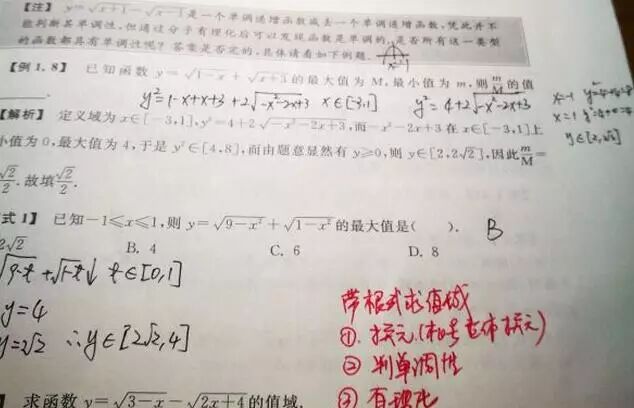 【注】 y=√x+1-√x-1是一个单调递增函数减去一个单调递增函数,凭此并不
能判断其单调性,但通过分子有理化后可以发现函数是单调的,是否所有这一类型
的函数都具有单调性呢?答案是否定的,具体请看如下例题.
【例1.8】 已知函数 y=√1-x+√x+3的最大值为 M,最小值为 m,则m/M的值
y²=1-x+x+3+2√-x²-2x+3 x∈[-3,1] y²=4+2√-x²-2x+3
x=1
y∈[2,√8]
【解析】 定义域为x∈[-3,1],y²=4+2√-x²-2x+3,而-x²-2x+3在x∈[-3,1]上
小值为0,最大值为4,于是 y²∈[4,8],而由题意显然有 y≥0,则 y∈[2,2√2],因此m/M=
√2/2.故填√2/2.
式1】 已知-1≤x≤1,则 y=√9-x²+√1-x²的最大值是( ). B
2√2 B. 4 C. 6 D. 8
√9-t+√1-t↓ t∈[0,1]
y=4
y=2√2 ∴y∈[2√2,4]
带根式求值域
①.换元.(根号整体换元)
②判单调性
③有理化
求函数 y=√3-x-√2x+4的值域.